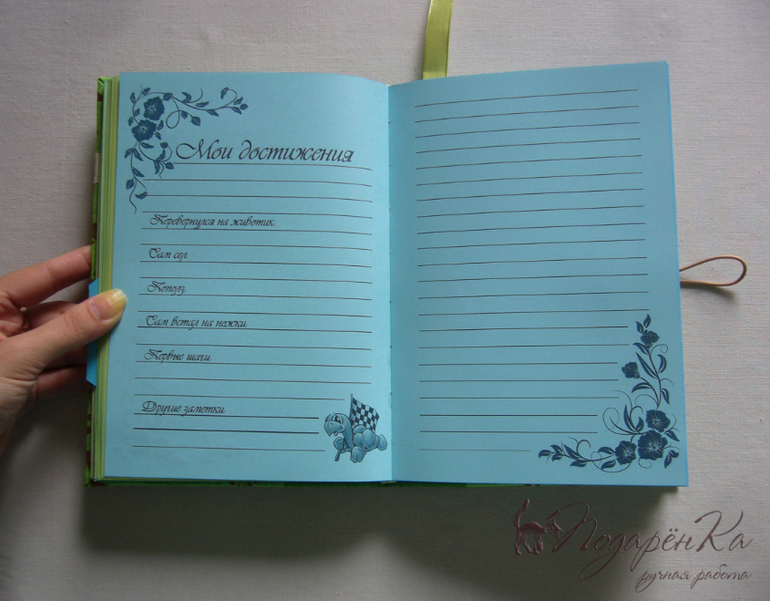 Мои достижения
Перевернулся на животик
Сам сел
Пополз
Сам встал на ножки
Первые шаги
Другие заметки
ПодарёнКа
ручная работа